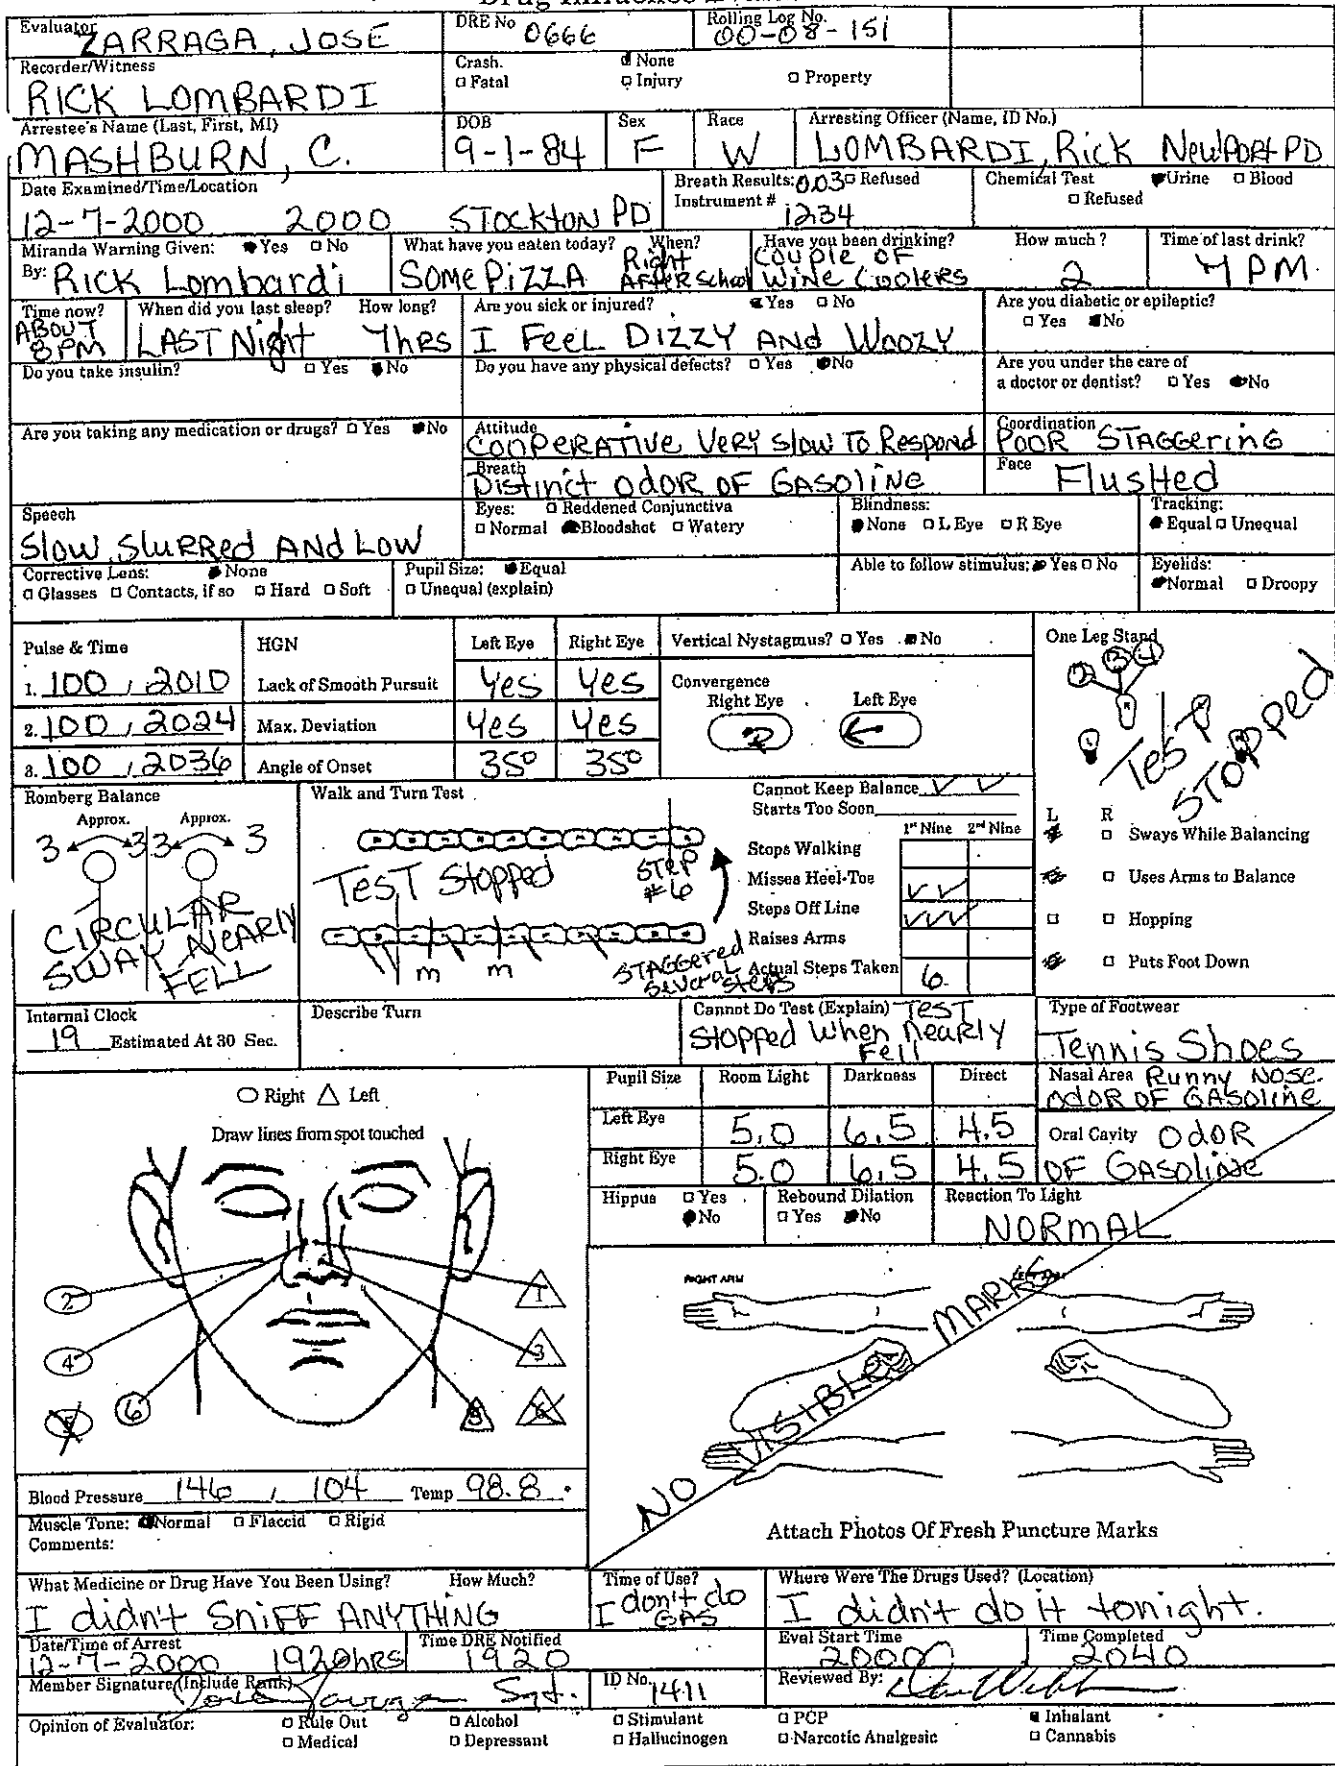 Evaluator ZARRAGA, JOSE
DRE No 0666
Rolling Log No. 00-08-151
Recorder/Witness
RICK LOMBARDI
Crash. None
Fatal Injury Property
Arrestee's Name (Last, First, MI)
MASHBURN, C.
DOB
9-1-84
Sex
F
Race
W
Arresting Officer (Name, ID No.)
LOMBARDI, Rick NewPORt PD
Date Examined/Time/Location
12-7-2000 2000 STOCKtON PD
Breath Results: 0.03 Refused
Instrument # 1234
Chemical Test Urine Blood
Refused
Miranda Warning Given: Yes No
By: Rick Lombardi
What have you eaten today? When?
Some PiZZA Right AFteR School
Have you been drinking? How much?
Couple OF Wine Coolers 2
Time of last drink?
4 PM
Time now?
ABOUT 8PM
When did you last sleep? How long?
LAST Night 7hRs
Are you sick or injured? Yes No
I FeeL DIZZY ANd WoozY
Are you diabetic or epileptic?
Yes No
Do you take insulin? Yes No
Do you have any physical defects? Yes No
Are you under the care of
a doctor or dentist? Yes No
Are you taking any medication or drugs? Yes No
Attitude
COOPERATive VeRY Slow To Respond
Coordination
POOR STAGGERiNG
Breath
Distinct odoR OF GASoliNe
Face
FlusHed
Speech
Slow, SluRRed ANd Low
Eyes: Reddened Conjunctiva
Normal Bloodshot Watery
Blindness:
None L Eye R Eye
Tracking:
Equal Unequal
Corrective Lens: None
Glasses Contacts, if so Hard Soft
Pupil Size: Equal
Unequal (explain)
Able to follow stimulus: Yes No
Eyelids:
Normal Droopy
Pulse & Time
1. 100 / 2010
2. 100 / 2024
3. 100 / 2036
HGN Left Eye Right Eye
Lack of Smooth Pursuit Yes Yes
Max. Deviation Yes Yes
Angle of Onset 35° 35°
Vertical Nystagmus? Yes No
Convergence
Right Eye Left Eye
One Leg Stand
Test Stopped
L R
Sways While Balancing
Uses Arms to Balance
Hopping
Puts Foot Down
Romberg Balance
Approx. Approx.
3 3 3 3
CIRCULAR
SWAY NEARLY
FELL
Walk and Turn Test
TesT Stopped
STEP #6
m m
STAGGered
Several Steps
Cannot Keep Balance
Starts Too Soon
1st Nine 2nd Nine
Stops Walking
Misses Heel-Toe
Steps Off Line
Raises Arms
Actual Steps Taken 6
Internal Clock
19 Estimated At 30 Sec.
Describe Turn
Cannot Do Test (Explain) TesT
Stopped when nearly
Fell
Type of Footwear
Tennis Shoes
Right Left
Draw lines from spot touched
2 4 5 6
1 3 5 6
Pupil Size Room Light Darkness Direct
Left Eye 5.0 6.5 4.5
Right Eye 5.0 6.5 4.5
Nasal Area Runny NOSE.
OdOR OF GASOline
Oral Cavity OdOR
OF GASOliNe
Hippus Yes
No
Rebound Dilation
Yes No
Reaction To Light
NORMAL
RIGHT ARM
NO VISIBLE MARKS
Attach Photos Of Fresh Puncture Marks
Blood Pressure 146 / 104 Temp 98.8
Muscle Tone: Normal Flaccid Rigid
Comments:
What Medicine or Drug Have You Been Using? How Much?
I didn't SniFF ANYTHING
Time of Use?
I don't do GAS
Where Were The Drugs Used? (Location)
I didn't do it tonight.
Date/Time of Arrest
12-7-2000 1920hRs
Time DRE Notified
1920
Eval Start Time
2000
Time Completed
2040
Member Signature (Include Rank) Sgt.
ID No. 1411
Reviewed By:
Opinion of Evaluator: Rule Out Alcohol Stimulant PCP Inhalant
Medical Depressant Hallucinogen Narcotic Analgesic Cannabis